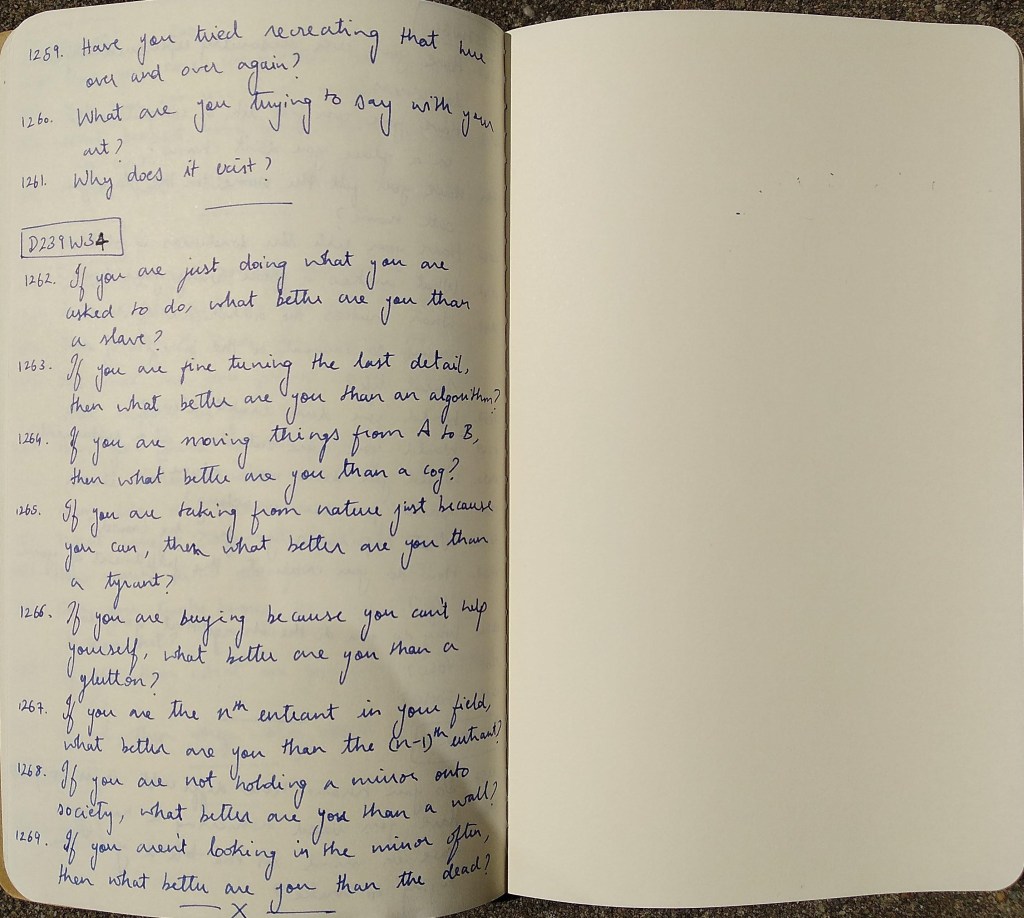 1259. Have you tried recreating that hue
over and over again?
1260. What are you trying to say with your
art?
1261. Why does it exist?
D239W34
1262. If you are just doing what you are
asked to do, what better are you than
a slave?
1263. If you are fine tuning the last detail,
then what better are you than an algorithm?
1264. If you are moving things from A to B,
then what better are you than a cog?
1265. If you are taking from nature just because
you can, then what better are you than
a tyrant?
1266. If you are buying because you can't help
yourself, what better are you than a
glutton?
1267. If you are the nth entrant in your field,
what better are you than the (n-1)th entrant?
1268. If you are not holding a mirror onto
society, what better are you than a wall?
1269. If you aren't looking in the mirror often,
then what better are you than the dead?
— X —